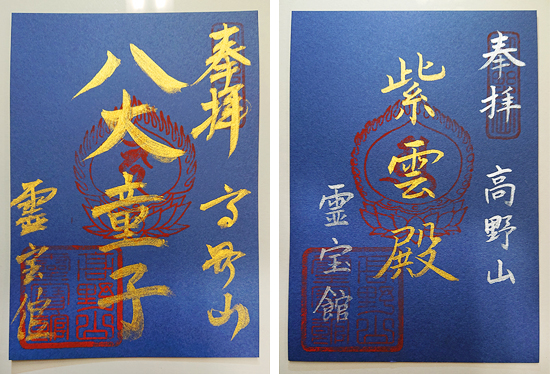 奉拝
高野山
八大童子
霊宝館
奉拝
高野山
紫雲殿
霊宝館